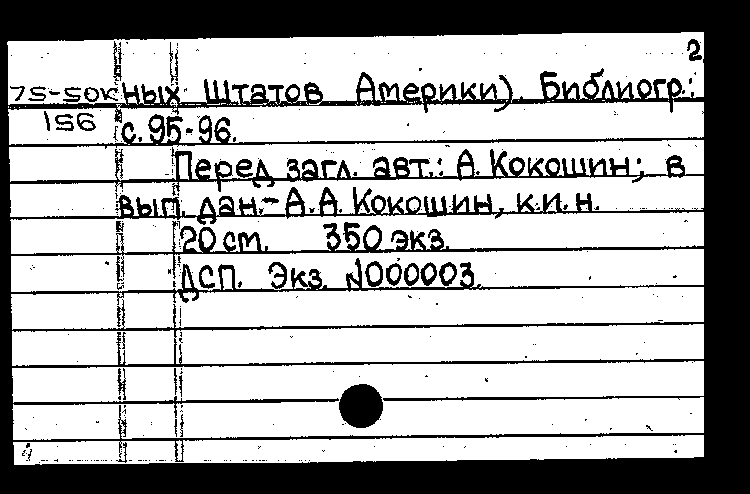 2
75-50к ных Штатов Америки). Библиогр.:
156 с. 95-96.
Перед загл. авт.: А. Кокошин; в
вып. дан.- А.А. Кокошин, к.и.н.
20 см. 350 экз.
ДСП. Экз. №000003.